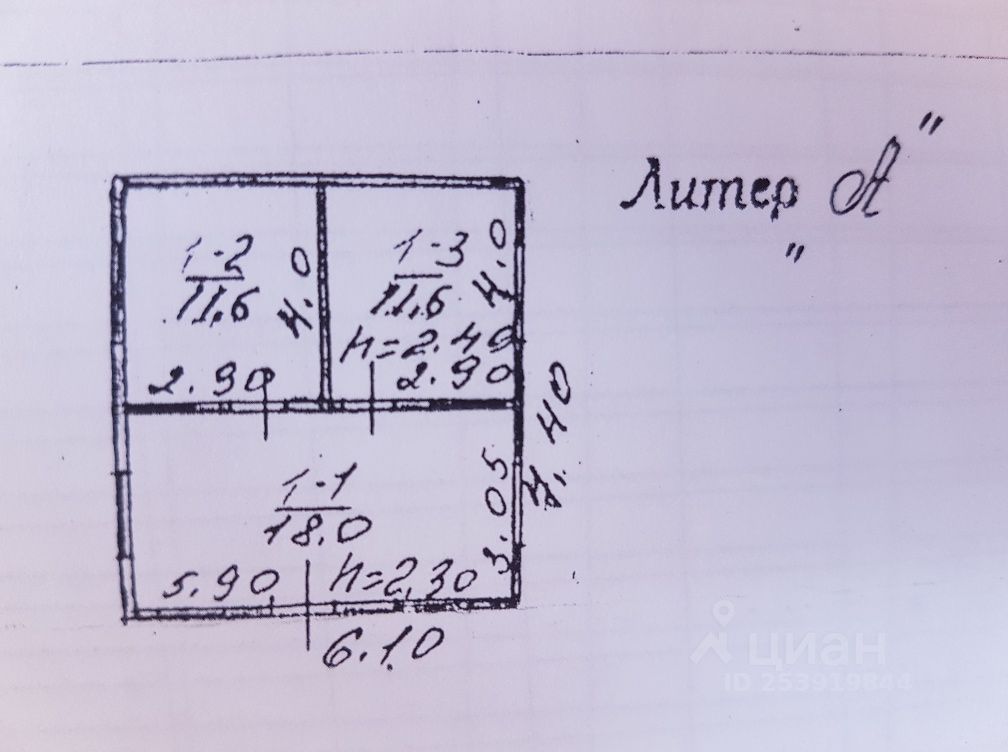 Литер "А"
1-2
11,6
4.0
2.90
1-3
11,6
4.0
h=2.40
2.90
7.40
1-1
18.0
3.05
5.90
h=2,30
6.10
циан
ID 253919844